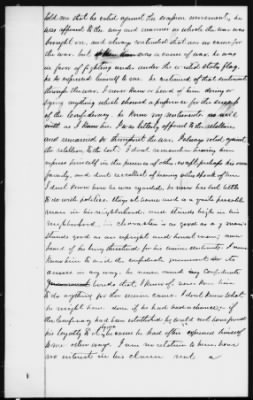 told me that he voted against the secession movement, he
was opposed to the way and manner in which the war was
brought on, and always contended that saw no cause for
the war but was a cause of war. he was
in favor of fighting under the old state flag.
he so expressed himself to me. he sustained of that sentiment
through the war. I never knew or heard of him doing or
saying anything which showed a preference for the success
of the Confederacy. he knew my sentiments as well
as I knew his. I was bitterly opposed to the rebellion
and remained so throughout the war. I always voted against
the rebellion to the last. I dont remember hearing him
express himself in the presence of others except perhaps his own
family, and dont recollect of hearing others speak of him
I dont know how he was regarded, he had little
to do with politics. Stays at home and is a quiet peaceable
man in his neighborhood and stands high in his
neighborhood, in character is as good as any man
stands good as an upright and honest man. never
heard of his being threatened for his union sentiments. I never
knew him to aid the confederate government or
army in any way. he never owned any Confederate
bonds that I know of. never knew him
to do anything for the union cause. I dont know what
he might have done if he had had a chance. if
the Confederacy had been established he could not have proved
his loyalty to it unless he had after expressed himself
some other way. I am no relation to him. have
no interest in his claim and